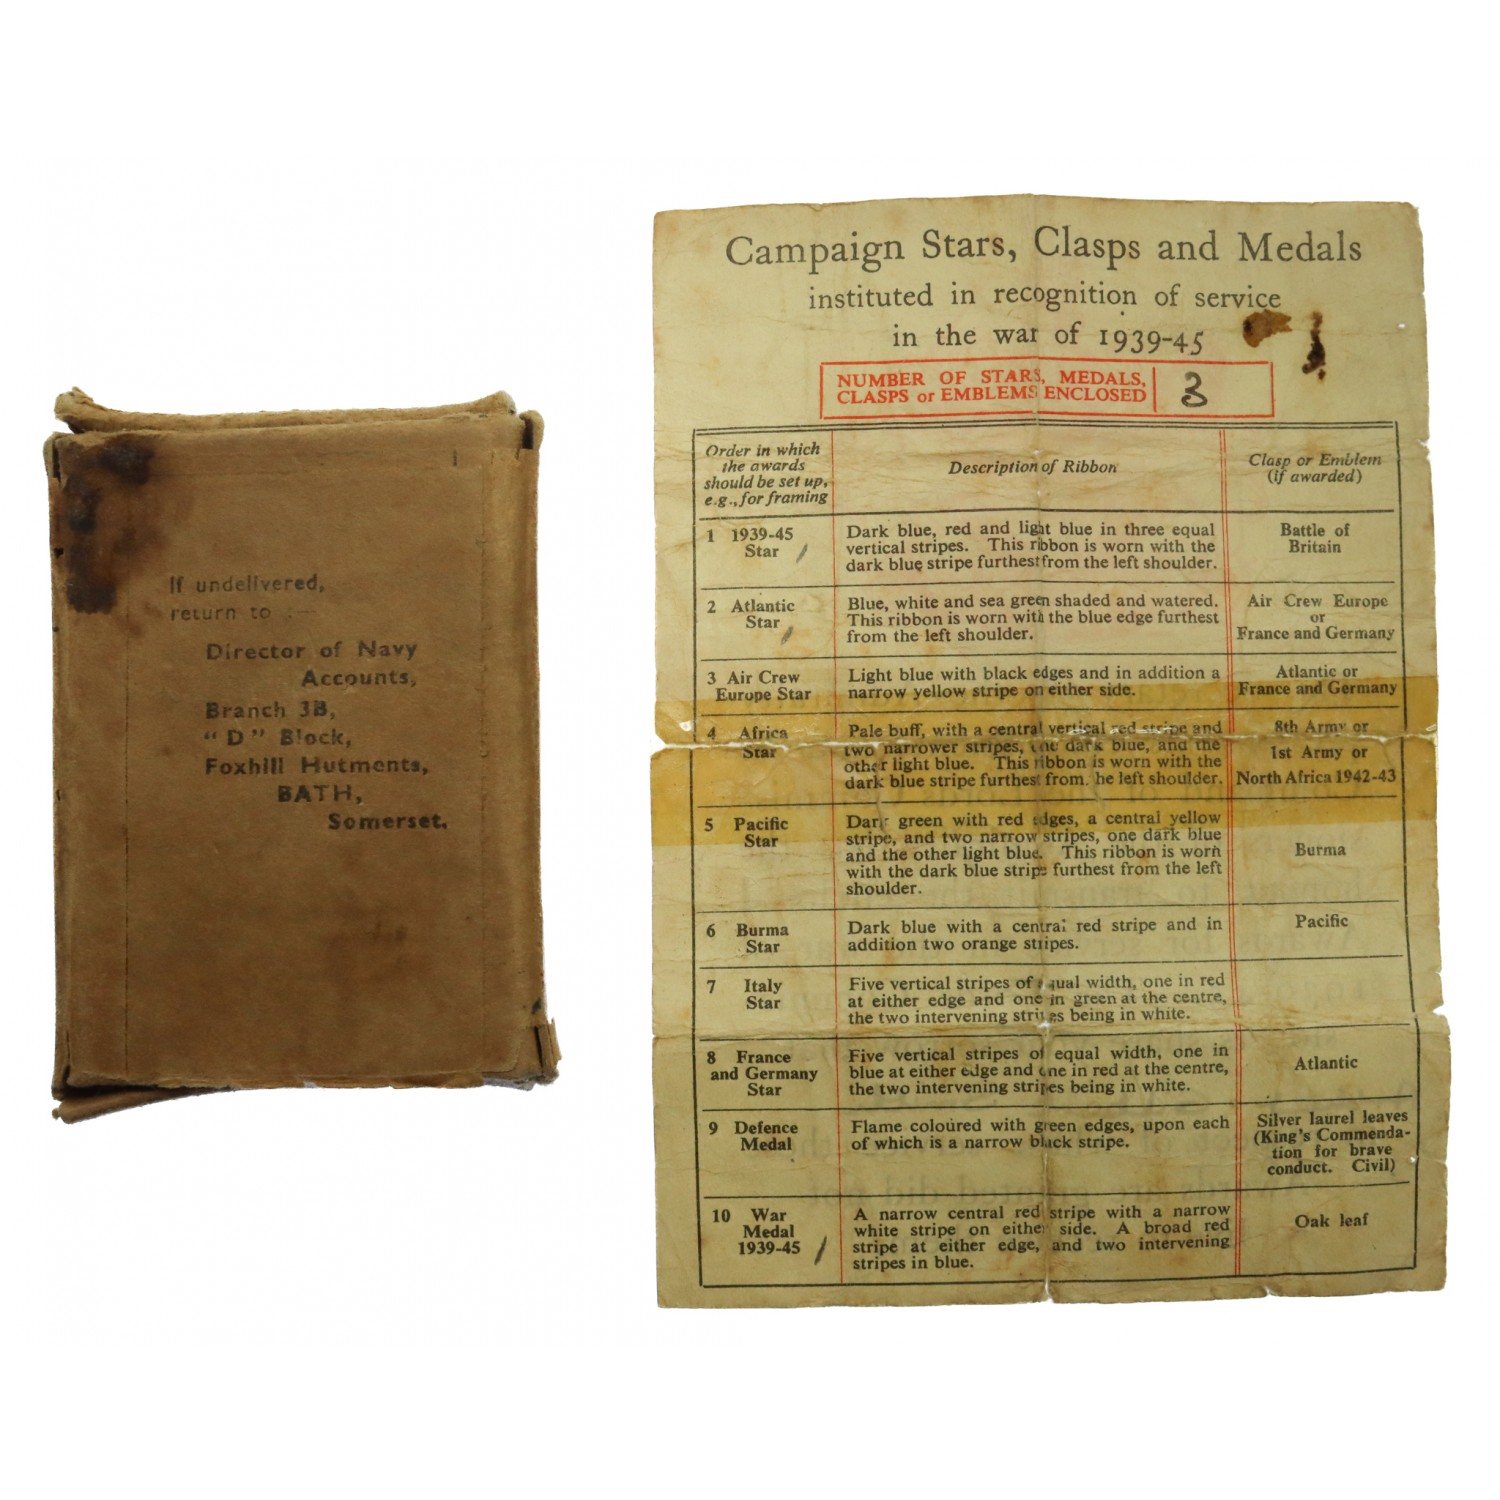 If undelivered,
return to :—
Director of Navy
Accounts,
Branch 3B,
"D" Block,
Foxhill Hutments,
BATH,
Somerset.
Campaign Stars, Clasps and Medals
instituted in recognition of service
in the war of 1939-45
NUMBER OF STARS, MEDALS,
CLASPS or EMBLEMS ENCLOSED
3
Order in which
the awards
should be set up,
e.g., for framing
Description of Ribbon
Clasp or Emblem
(if awarded)
1 1939-45
Star /
Dark blue, red and light blue in three equal
vertical stripes. This ribbon is worn with the
dark blue stripe furthest from the left shoulder.
Battle of
Britain
2 Atlantic
Star /
Blue, white and sea green shaded and watered.
This ribbon is worn with the blue edge furthest
from the left shoulder.
Air Crew Europe
or
France and Germany
3 Air Crew
Europe Star
Light blue with black edges and in addition a
narrow yellow stripe on either side.
Atlantic or
France and Germany
4 Africa
Star
Pale buff, with a central vertical red stripe and
two narrower stripes, one dark blue, and the
other light blue. This ribbon is worn with the
dark blue stripe furthest from the left shoulder.
8th Army or
1st Army or
North Africa 1942-43
5 Pacific
Star
Dark green with red edges, a central yellow
stripe, and two narrow stripes, one dark blue
and the other light blue. This ribbon is worn
with the dark blue stripe furthest from the left
shoulder.
Burma
6 Burma
Star
Dark blue with a central red stripe and in
addition two orange stripes.
Pacific
7 Italy
Star
Five vertical stripes of equal width, one in red
at either edge and one in green at the centre,
the two intervening stripes being in white.
8 France
and Germany
Star
Five vertical stripes of equal width, one in
blue at either edge and one in red at the centre,
the two intervening stripes being in white.
Atlantic
9 Defence
Medal
Flame coloured with green edges, upon each
of which is a narrow black stripe.
Silver laurel leaves
(King's Commenda-
tion for brave
conduct. Civil)
10 War
Medal
1939-45 /
A narrow central red stripe with a narrow
white stripe on either side. A broad red
stripe at either edge, and two intervening
stripes in blue.
Oak leaf